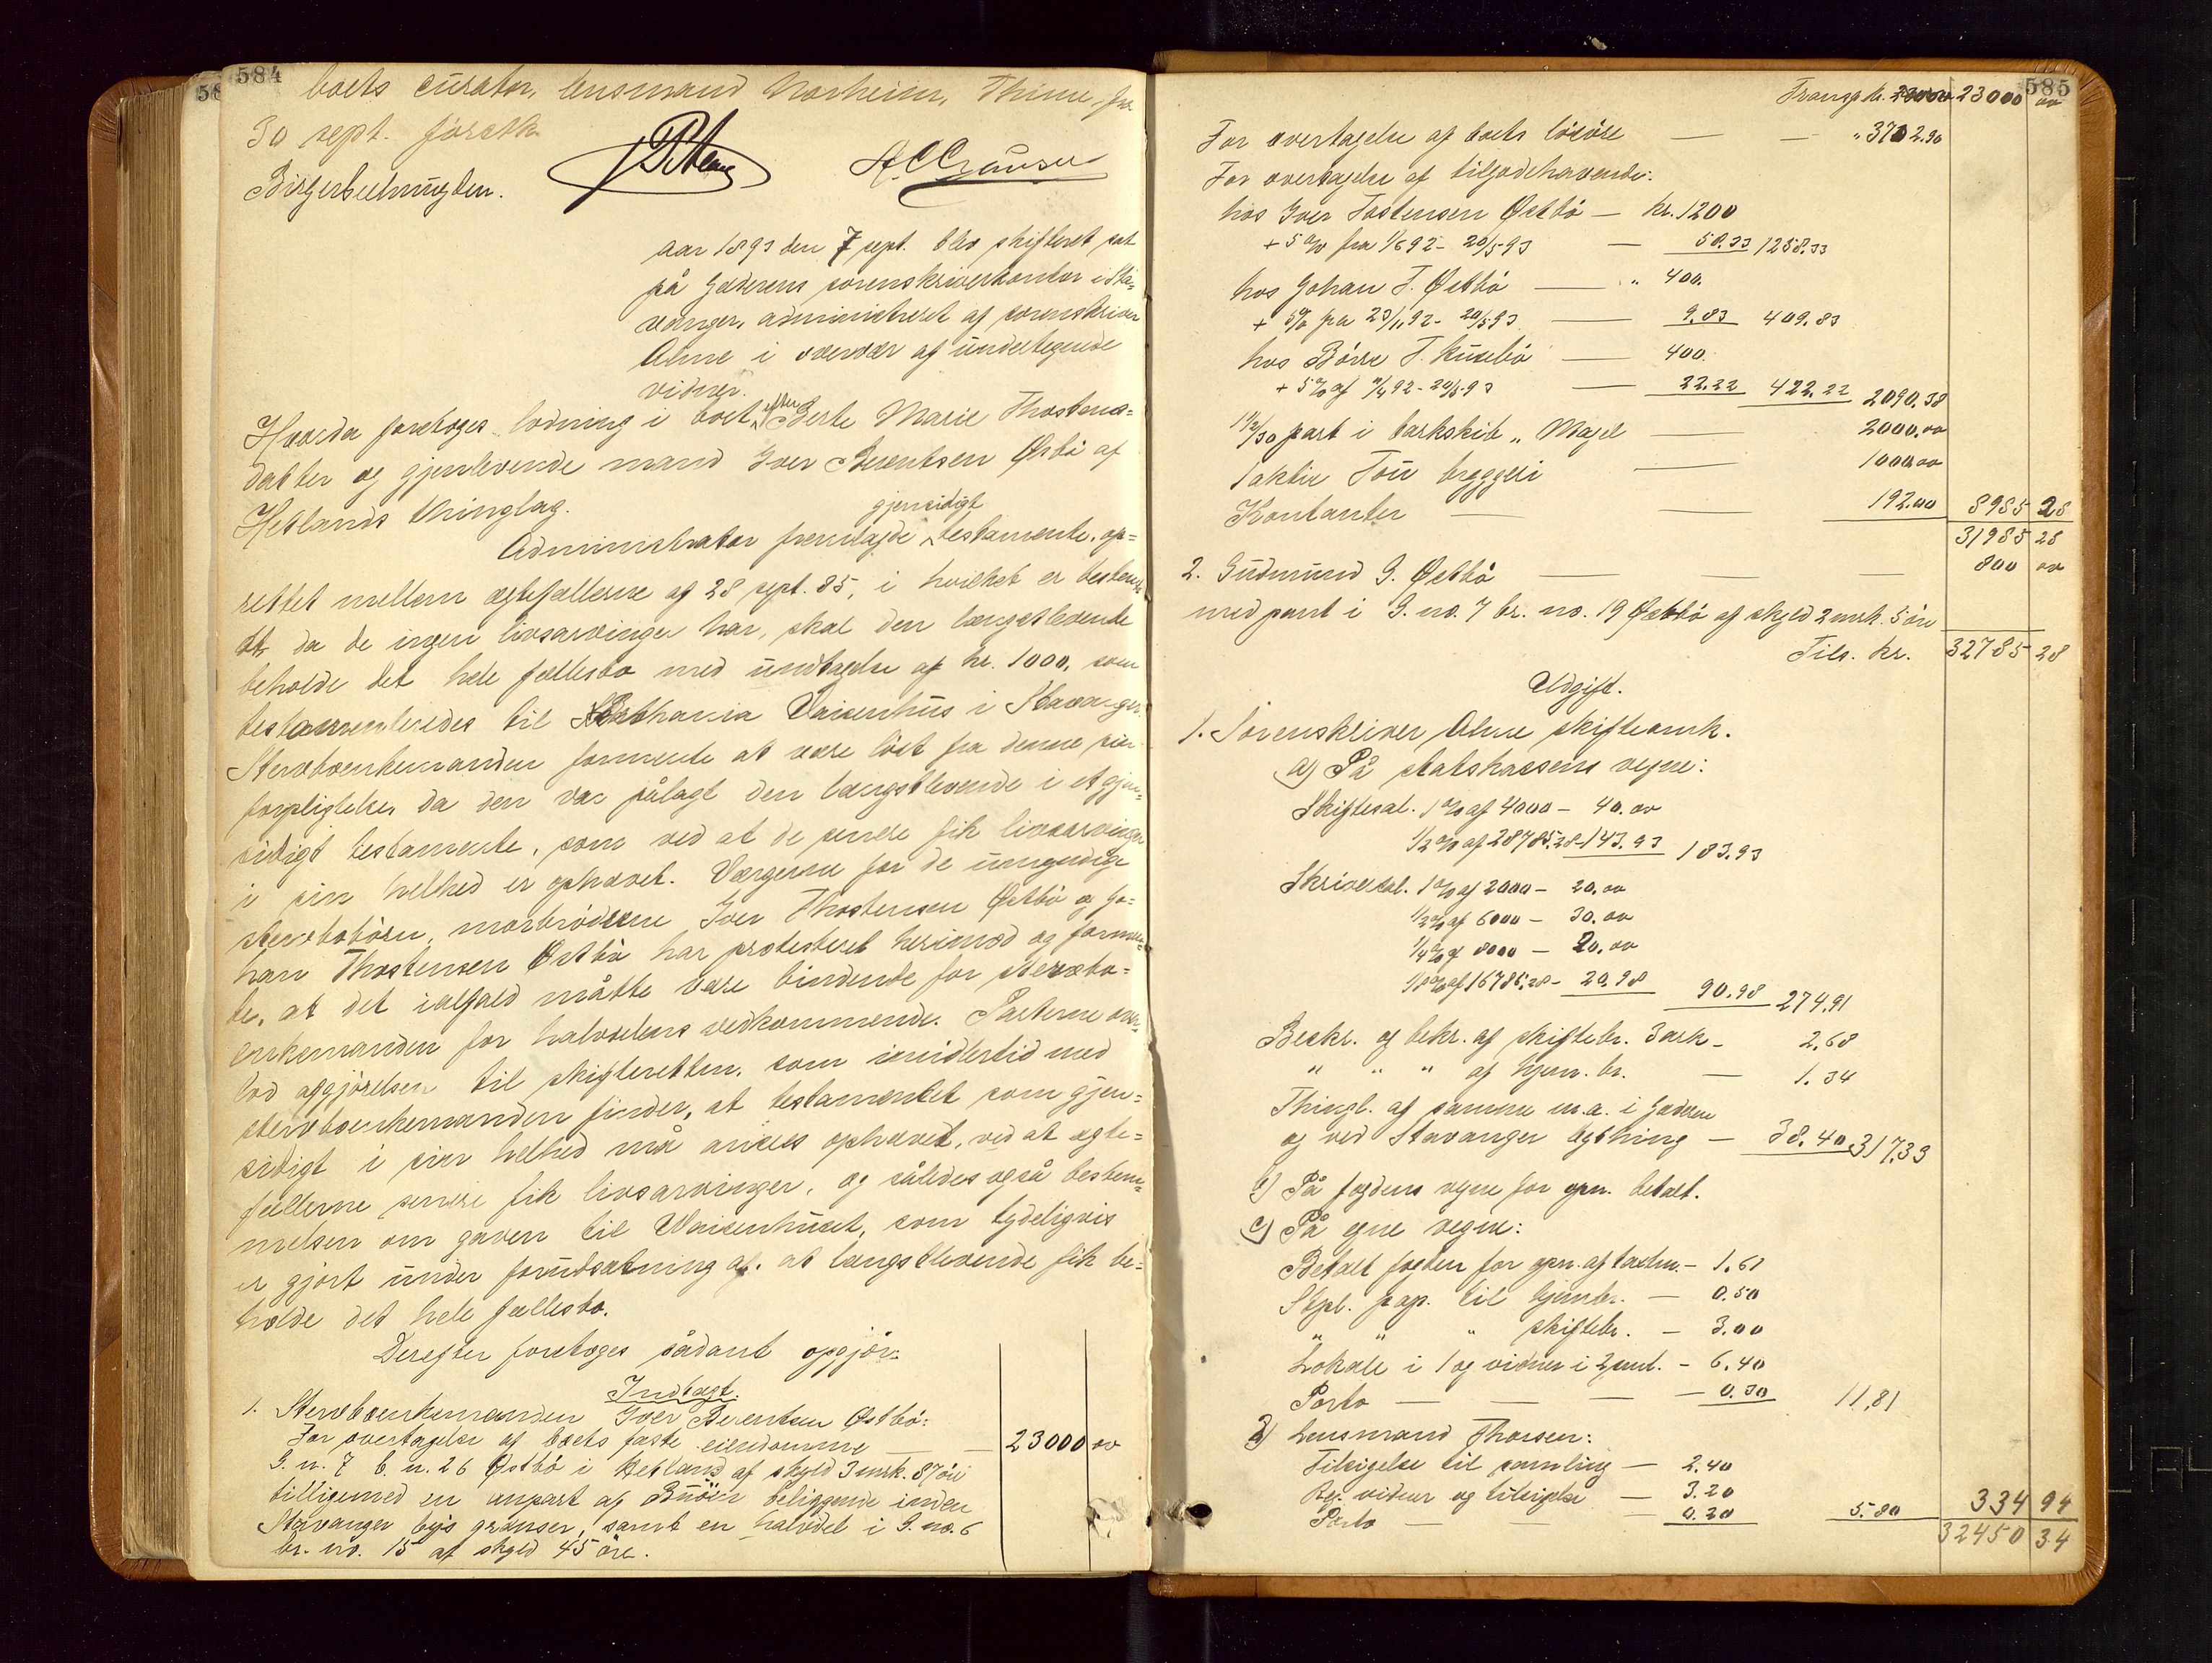 584
boets curator, lensmand Norheim, Thime for
30 sept. foretk
Birgerbeelmugden.
Aar 1893 den 7 sept. blev skifteret sat
på Jæderens sorenskriverkontor i Sta-
vanger, administreret af sorenskriver
Alme i overvær af undertegnede
vidner.
Hvorda foretoges lodning i boet efter Berte Marie Thostens-
datter og gjenlevende mand Iver Berentsen Østbö af
Hetlands thinglag.
Administrator fremlagde gjensidigt testamente, op-
rettet mellem ægtefællerne af 28 sept. 85, i hvilket er bestemt
at da de ingen livsarvinger har, skal den længstlevende
beholde det hele fællesbo med undtagelse af kr. 1000, som
testamenteredes til Waisenhus i Stavanger.
Stervboenkemanden formente at være löst fra denne sin
forpligtelse, da den var pålagt den længstlevende i et gjen-
sidigt testamente, som ved at de senere fik livsarvinger
i sin helhed er ophævet. Værgerne for de umyndige
stervbobörn, morbrödrene Iver Thostensen Østbö og Jo-
han Thostensen Østbö har protesteret herimod og formen-
te, at det ialfald måtte være bindende for stervbo-
enkemanden for halvdelens vedkommende. Parterne over-
lod afgjörelsen til skifteretten, som imidlertid med
stervboenkemanden finder, at testamentet som gjen-
sidigt i sin helhed må ansees ophævet, ved at ægte-
fællerne senere fik livsarvinger, og således også bestem-
melsen om gaven til Waisenhuset, som tydeligvis
er gjort under forudsætning af, at længstlevende fik be-
holde det hele fællesbo.
Derefter foretoges sådant opgjör:
Indtægt.
1. Stervboenkemanden Iver Berentsen Østbö:
For overtagelse af boets faste eiendomme — — 23000 00
G. n. 7 b. n. 26 Østbö i Hetland af skyld 3 mrk. 87 öre
tilligemed en anpart af Buöen beliggende inden
Stavanger bys grænser, samt en halvdel i G. no. 6
br. no. 15 af skyld 45 öre.
585
Transp. kr. 23000 00
For overtagelse af boets lösöre — — " 3702.90
For overtagelse af tilgodehavende:
hos Iver Tostensen Østbö — kr. 1200
+ 5 % fra 1/6 92 - 20/5 93 — 58.33 1258.33
hos Johan T. Østbö — " 400.
+ 5% fra 23/11 92 - 20/5 93 — 9.83 409.83
hos Börre T. Husebö — 400.
+ 5 % af 9/4 92 - 20/5 93 — 22.22 422.22 2090.38
1 1/2/30 part i barkskib „Magel — 2000.00
1 aktie Tou bryggeri — 1000.00
Kontanter — — 192.00 8985 28
31985 28
2. Gudmund G. Østbö — — — 800 00
med pant i G. no. 7 br. no. 19 Østbö af skyld 2 mrk. 5 öre
Tils. kr. 32785 28
Udgift.
1. Sorenskriver Alme skifteomk.
a) På statskassens vegne:
Skiftesal. 1 % af 4000 — 40.00
1/2 % af 28785.28 - 143.93 183.93
Skriversal. 1 % af 2000 — 20.00
1/2 % af 6000 — 30.00
1/4 % af 8000 — 20.00
1/8 % af 16785.28 - 20.98 90.98 274.91
Beskr. og bekr. af skiftebr. 3 ark — 2.68
" " " af hjem. br. — 1.34
Thingl. af samme m.a. i Jæderen
og ved Stavanger bything — 38.40 317.33
b) På fogdens vegne for gen. betalt.
c) På egne vegne:
Betalt fogden for gen. af taxten. — 1.61
Stpl. pap. til hjembr. — 0.50
" " " skiftebr. — 3.00
Lokale i 1 og vidner i 2 saml. — 6.40
Porto — — — 0.30 11.81
d) Lensmand Thorsen:
Tilsigelse til samling — 2.40
Reg. vidner og tilsigelse — 3.20
Porto — — 0.20 5.80 334 94
32450 34